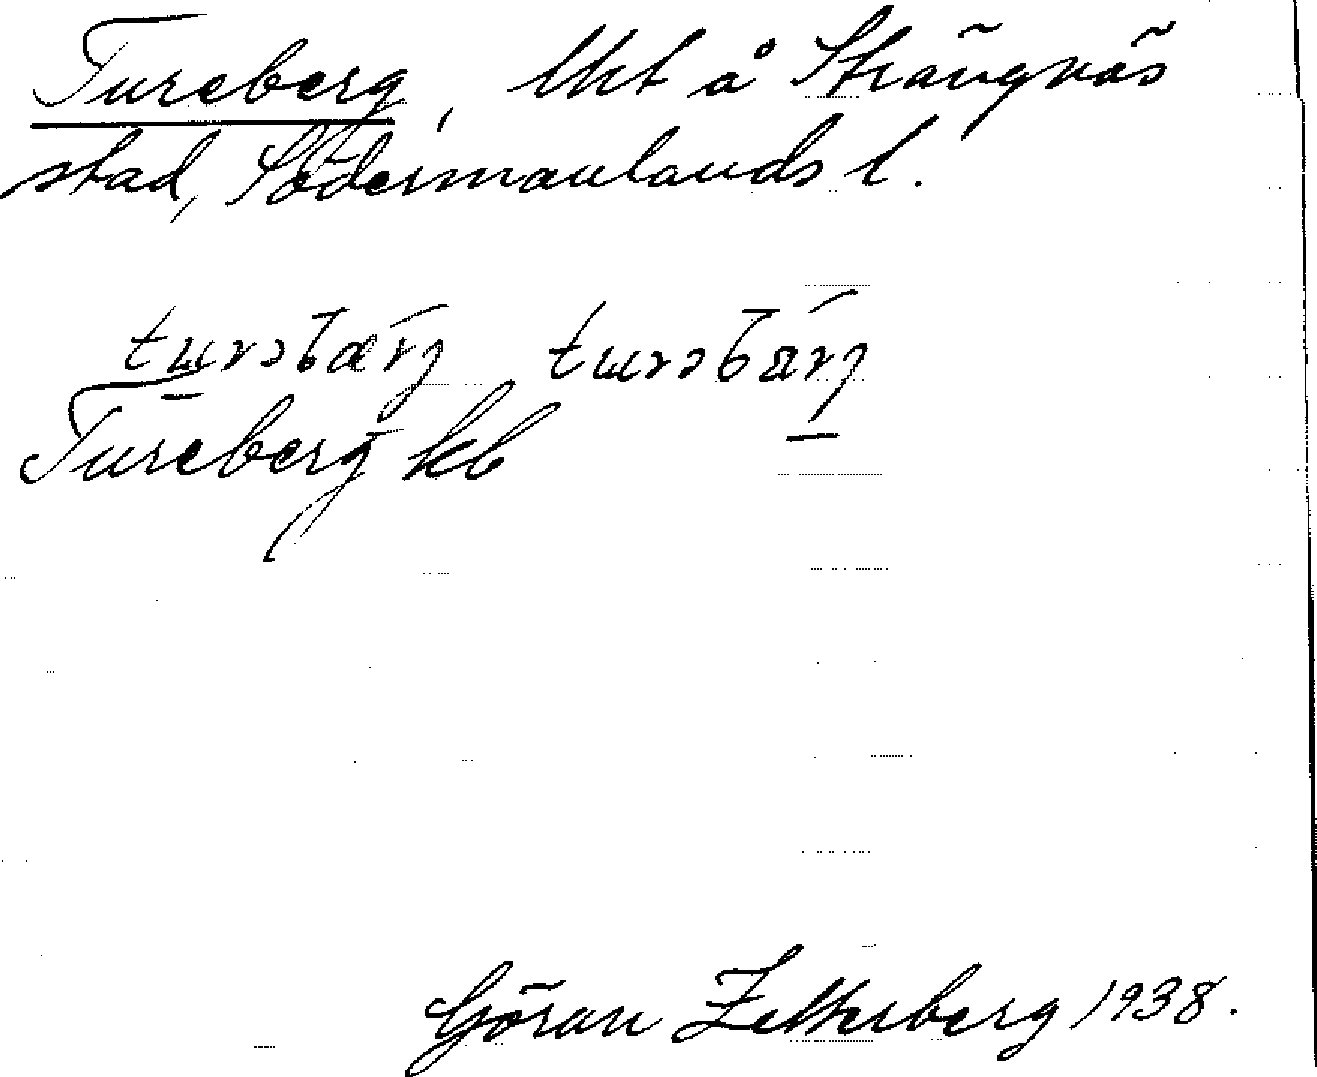 Tureberg, lht å Strängnäs
stad, Södermanlands l.
turəbærj turəbärj
Tureberg kb
Göran Zetterberg 1938.